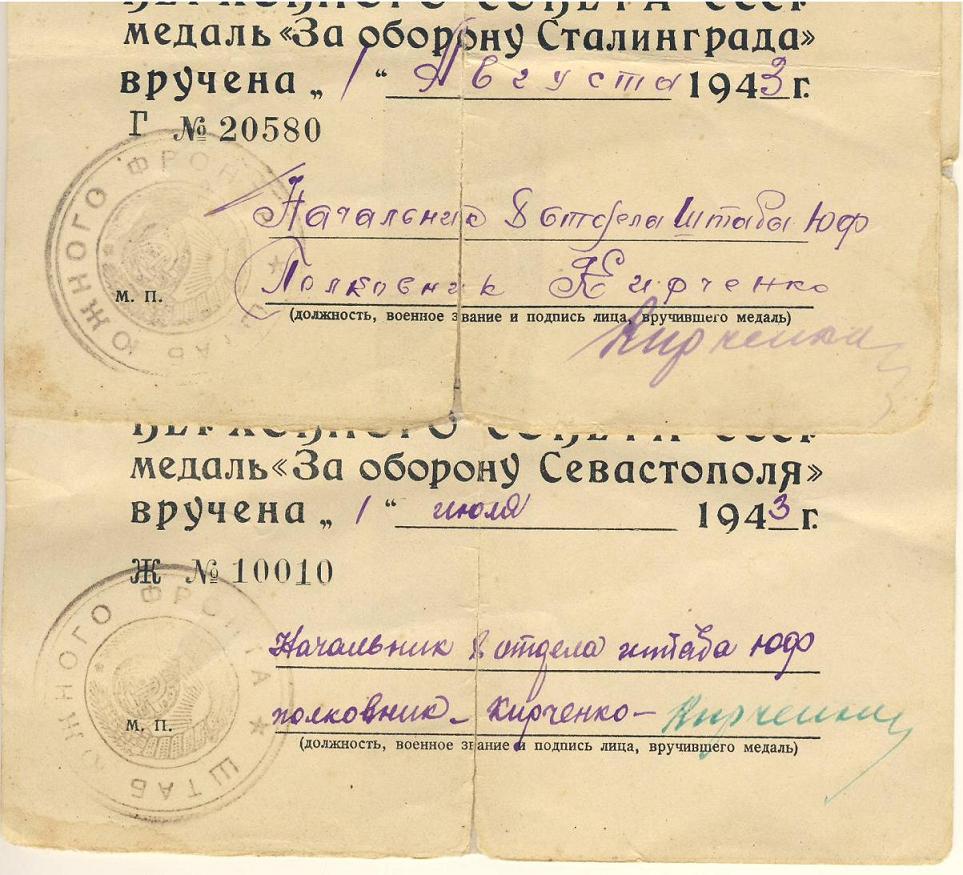 ВЕРХОВНОГО СОВЕТА СССР
медаль «За оборону Сталинграда»
вручена „1“ Августа 1943 г.
Г № 20580
ШТАБ ЮЖНОГО ФРОНТА
Начальник 8 отдела Штаба ЮФ
Полковник Кирченко
М. П.
(должность, военное звание и подпись лица, вручившего медаль)
Кирченко
ВЕРХОВНОГО СОВЕТА СССР
медаль «За оборону Севастополя»
вручена „1“ июля 1943 г.
Ж № 10010
ШТАБ ЮЖНОГО ФРОНТА
Начальник 8 отдела штаба ЮФ
полковник – Кирченко – Кирченко
М. П.
(должность, военное звание и подпись лица, вручившего медаль)